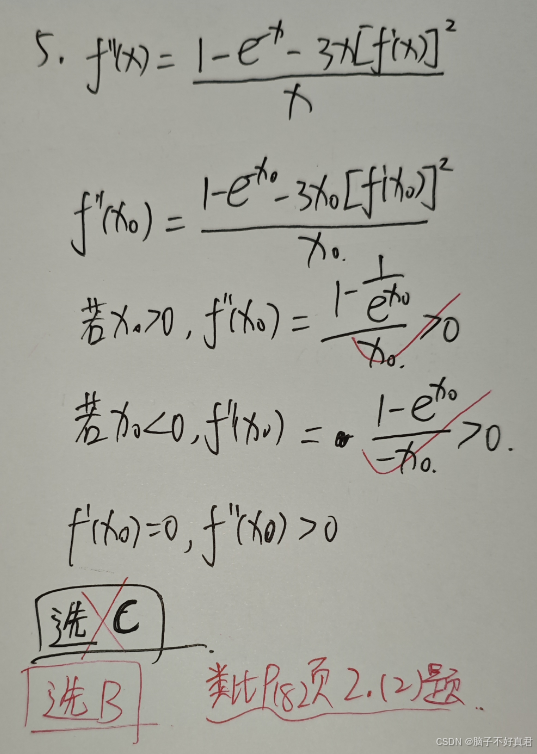 5. f''(x) = \frac{1-e^{-x}-3x[f'(x)]^2}{x}
f''(x_0) = \frac{1-e^{x_0}-3x_0[f'(x_0)]^2}{x_0.}
若x_0>0, f''(x_0) = \frac{1-\frac{1}{e^{x_0}}}{x_0.} >0
若x_0<0, f''(x_0) = \frac{1-e^{x_0}}{-x_0.} >0.
f'(x_0)=0, f''(x_0)>0
选 C
选B 类比P182页 2.(2)题.
CSDN @脑子不好真君